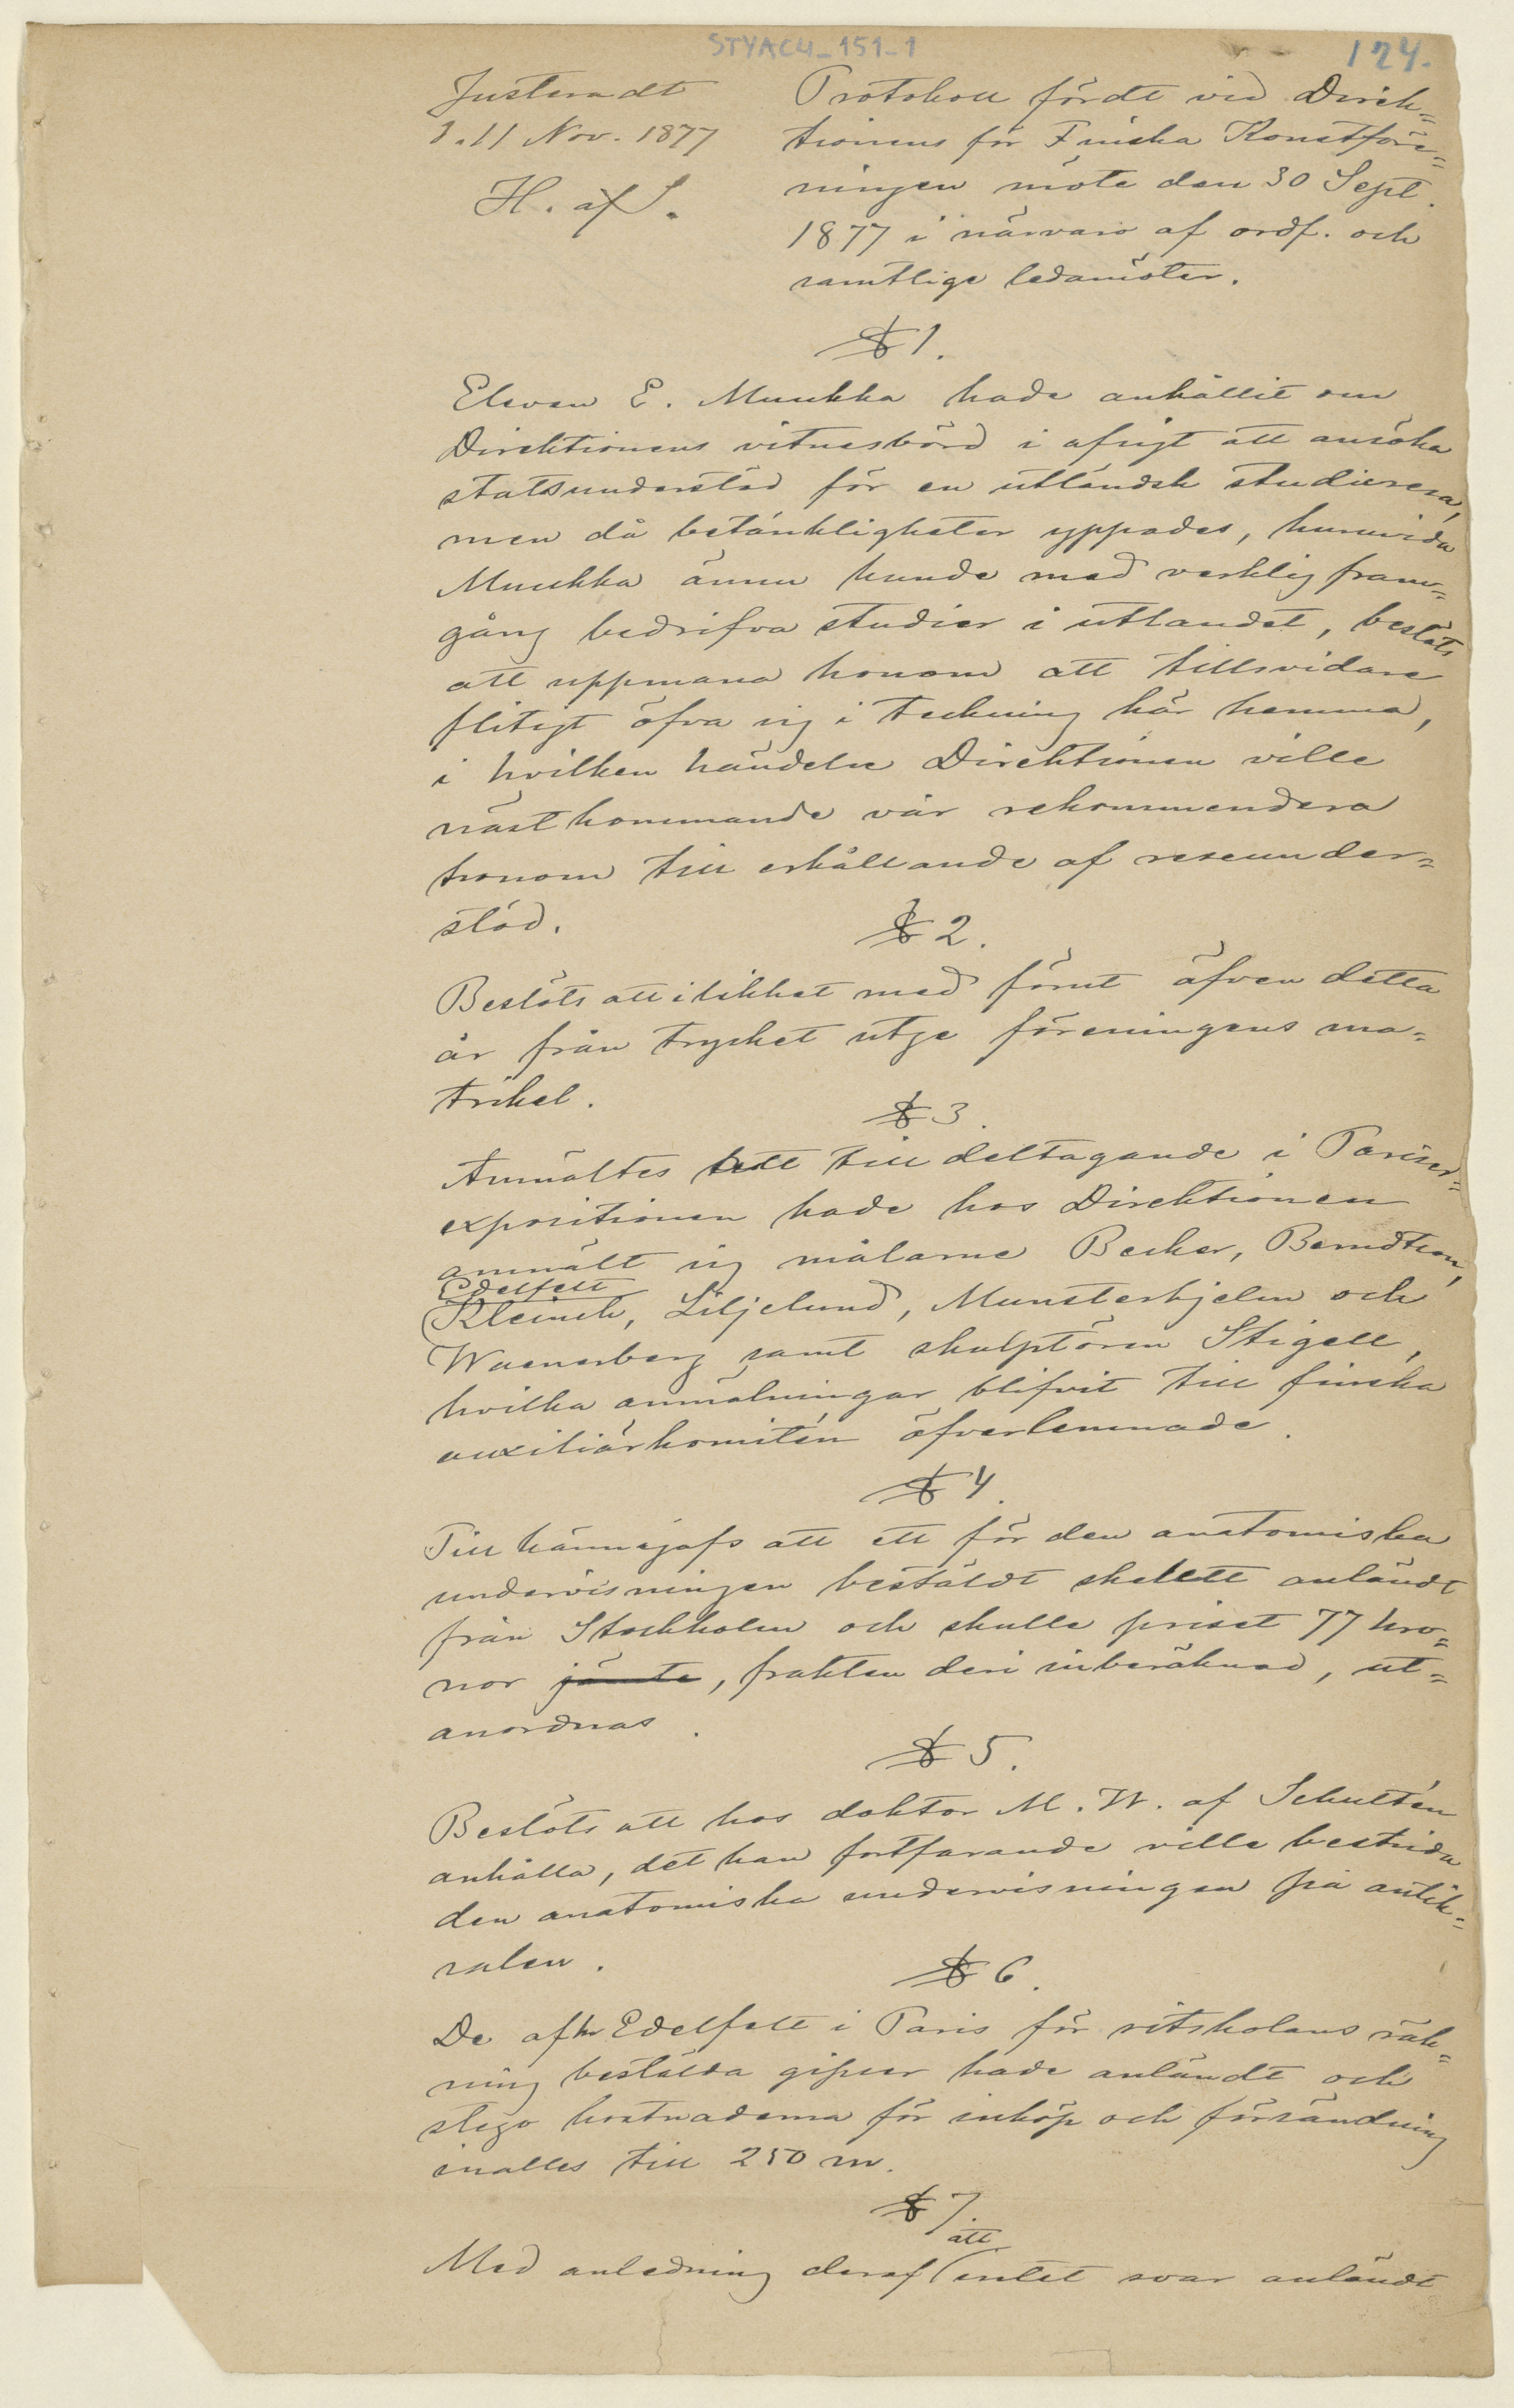 STYAC4_151-1
124.
Justeradt
d. 11 Nov. 1877
H. af S.
Protokoll fördt vid Direk=
tionens för Finska Konstföre=
ningen möte den 30 Sept.
1877 i närvaro af ordf. och
samtlige ledamöter.
§ 1.
Eleven E. Muukka hade anhållit om
Direktionens vitnesbörd i afsigt att ansöka
statsunderstöd för en utländsk studieresa,
men då betänkligheter yppades, huruvida
Muukka ännu kunde med verklig fram=
gång bedrifva studier i utlandet, beslöts
att uppmana honom att tillsvidare
flitigt öfva sig i teckning här hemma,
i hvilken händelse Direktionen ville
nästkommande vår rekommendera
honom till erhållande af reseunder=
stöd.
§ 2.
Beslöts att i likhet med förut äfven detta
år från trycket utge föreningens ma=
trikel.
§ 3.
Anmältes att till deltagande i Pariser=
expositionen hade hos Direktionen
anmält sig målarne Becker, Berndtson,
Edelfelt
Kleineh, Liljelund, Munsterhjelm och
Waenerberg samt skulptören Stigell,
hvilka anmälningar blifvit till finska
auxiliärkomitén öfverlemnade.
§ 4.
Till kännagafs att ett för den anatomiska
undervisningen bestäldt skelett anländt
från Stockholm och skulle priset 77 kro=
nor jämte, frakten deri inberäknad, ut=
anordnas.
§ 5.
Beslöts att hos doktor M. W. af Schultén
anhålla, det han fortfarande ville bestrida
den anatomiska undervisningen på antik=
salen.
§ 6.
De af hr Edelfelt i Paris för ritskolans räk=
ning bestälda gipser hade anländt och
stego kostnaderna för inköp och försändning
inalles till 250 m.
§ 7.
att
Med anledning deraf intet svar anländt